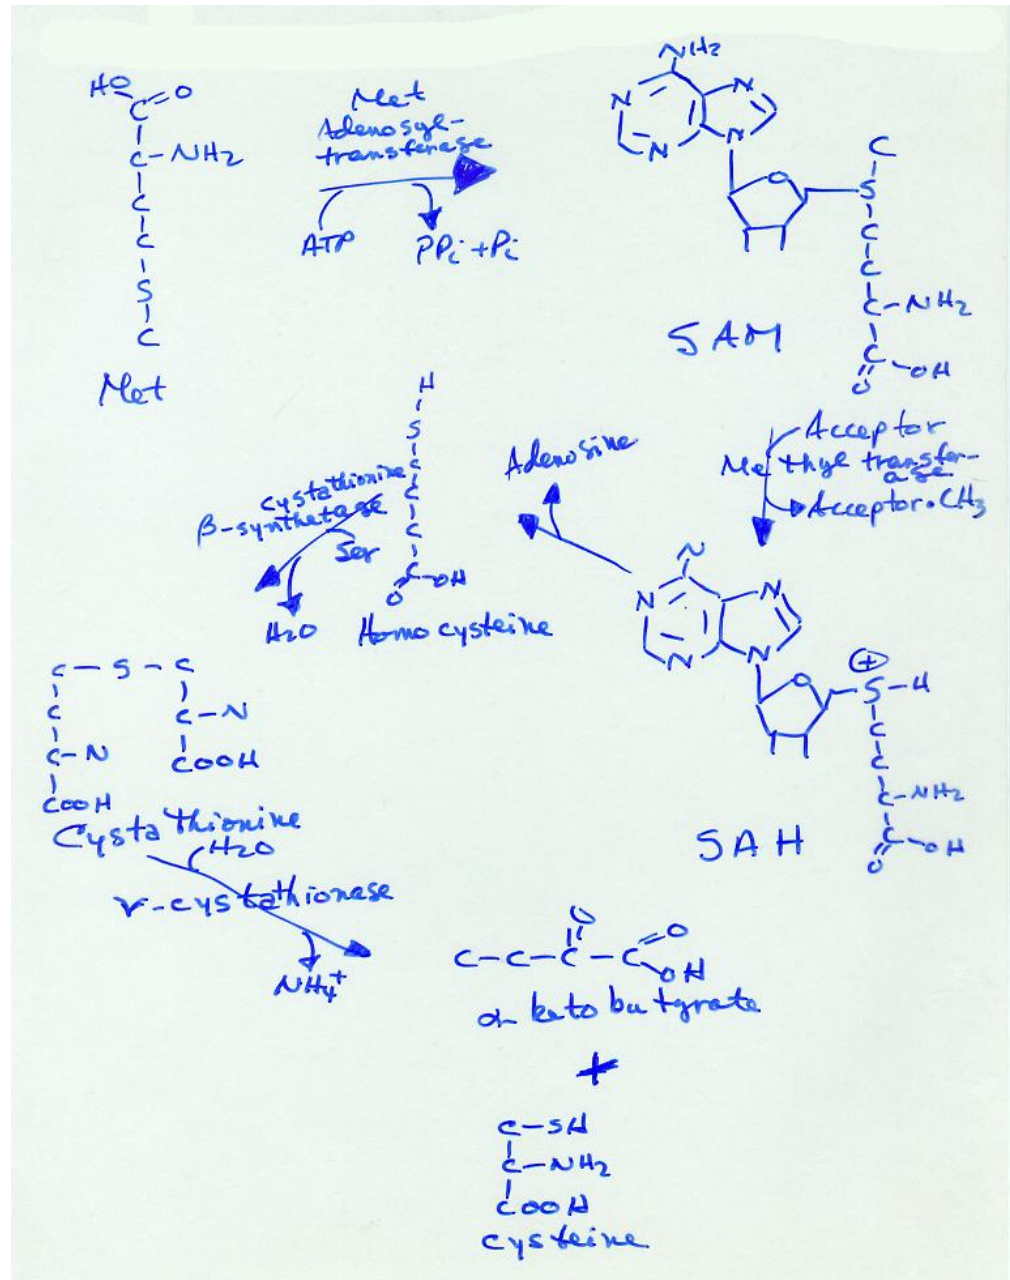 HO
C
O
C-NH2
C
C
S
C
Met
Met
Adenosyl-
transferase
ATP
PPi+Pi
NH2
N
N
N
N
O
C
S
C
C
C-NH2
C
O
OH
SAM
Acceptor
Methyl transfer-
ase
Acceptor·CH3
N
N
N
N
N
O
+
S-H
C
C
C-NH2
C
O
OH
SAH
Adenosine
H
S
C
C
C
C-OH
O
Homocysteine
Cystathionine
β-synthetase
Ser
H2O
C-S-C
C
C-N
C-N
COOH
COOH
Cystathionine
H2O
γ-cystathionase
NH4+
O
C-C-C-C
O
OH
α ketobutyrate
+
C-SH
C-NH2
COOH
cysteine